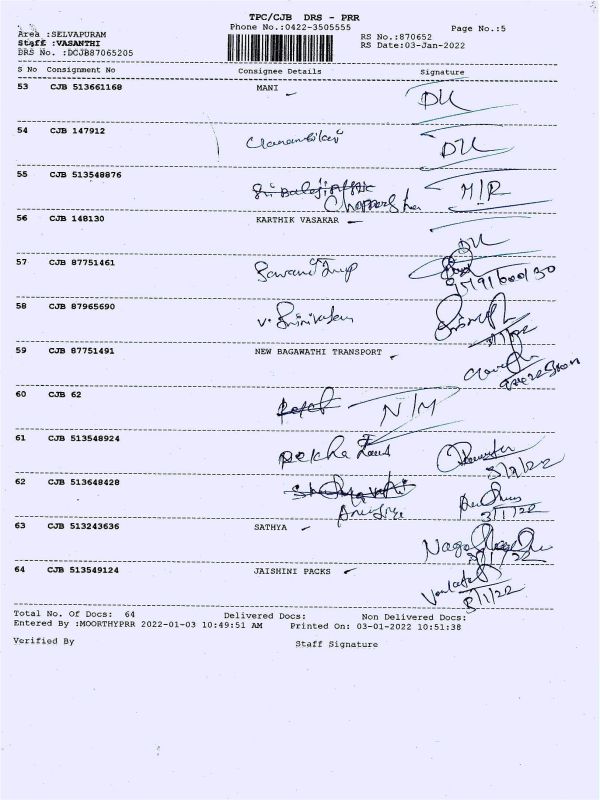 TPC/CJB DRS - PRR
Phone No.:0422-3505555 Page No.:5
Area :SELVAPURAM
Staff :VASANTHI RS No.:870652
DRS No. :DCJB87065205 RS Date:03-Jan-2022
S No Consignment No Consignee Details Signature
53 CJB 513661168 MANI DU
54 CJB 147912 DU
55 CJB 513548876 M/R
56 CJB 148130 KARTHIK VASAKAR DU
57 CJB 87751461
58 CJB 87965690 V. Srinivasan
59 CJB 87751491 NEW BAGAWATHI TRANSPORT
60 CJB 62 N/M
61 CJB 513548924
62 CJB 513648428 3/1/22
63 CJB 513243636 SATHYA
64 CJB 513549124 JAISHINI PACKS 3/1/22
Total No. Of Docs: 64 Delivered Docs: Non Delivered Docs:
Entered By :MOORTHYPRR 2022-01-03 10:49:51 AM Printed On: 03-01-2022 10:51:38
Verified By Staff Signature